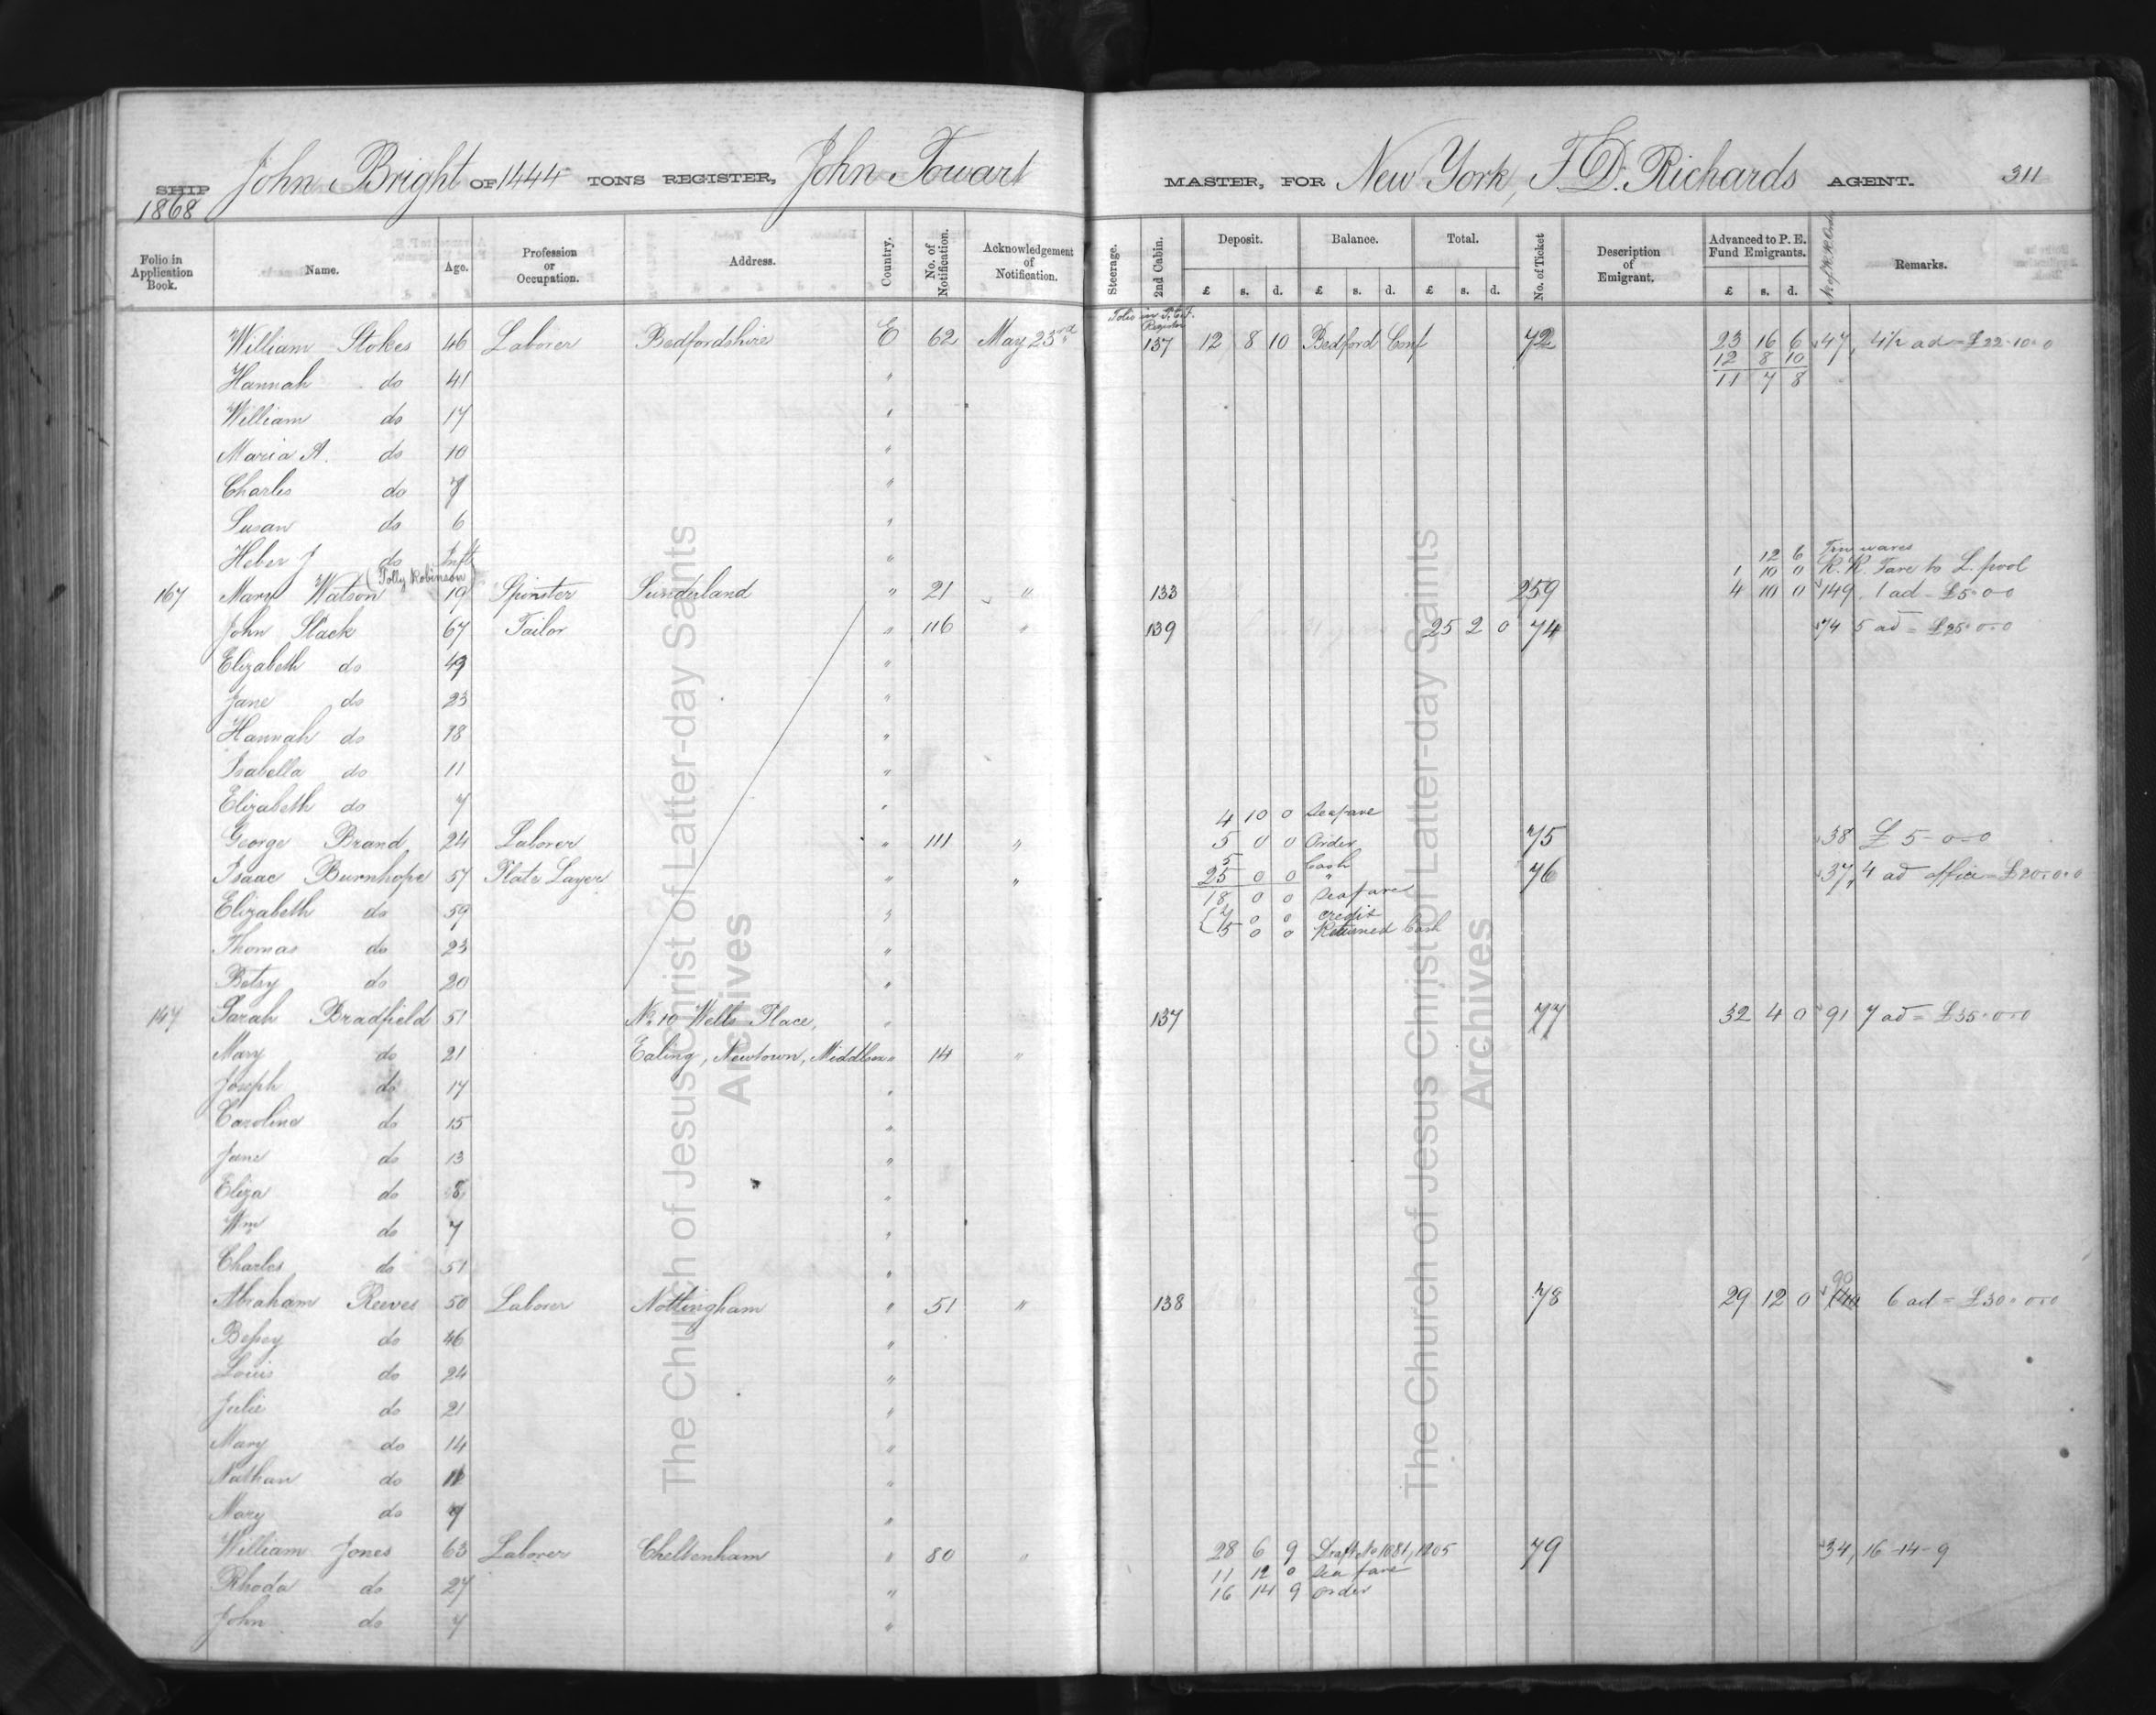 SHIP John Bright OF 1444 TONS REGISTER, John Towart MASTER, FOR New York, F. D. Richards AGENT. 311
1868
Folio in Application Book. Name. Age. Profession or Occupation. Address. Country. No. of Notification. Acknowledgement of Notification. Steerage. 2nd Cabin. Deposit. £ s. d. Balance. £ s. d. Total. £ s. d. No. of Ticket Description of Emigrant. Advanced to P. E. Fund Emigrants. £ s. d. Remarks.
Folio in P.E.F. Register
William Stokes 46 Laborer Bedfordshire E 62 May 23rd 137 12 8 10 Bedford Conf 72 23 16 6 47, 4½ ad = £22.10.0
12 8 10
Hannah do 41 " 11 7 8
William do 17 "
Maria A. do 10 "
Charles do 7 "
Susan do 6 "
12 6 Tin wares
Heber J do Inft " 1 10 0 R.R. Fare to L.pool
(Polly Robinson)
167 Mary Watson 19 Spinster Sunderland " 21 " 133 259 4 10 0 149, 1 ad = £5.0.0
John Slack 67 Tailor " 116 " 139 25 2 0 74 74 5 ad = £25.0.0
Elizabeth do 49 "
Jane do 23 "
Hannah do 18 "
Isabella do 11 "
Elizabeth do 7 "
4 10 0 Sea fare
George Brand, 24 Laborer " 111 " 5 0 0 Order 75 38 £5-0-0
5 Cash
Isaac Burnhope 57 Plate Layer " " 25 0 0 " 76 37, 4 ad office = £20.0.0
18 0 0 Sea fare
Elizabeth do 59 " 7 0 0 credit
5 0 0 Returned Cash
Thomas do 23 "
Betsy do 20 "
147 Sarah Bradfield 51 No. 10 Wells Place, " 137 77 32 4 0 91 7 ad = £35.0.0
Mary do 21 Ealing, Newtown, Middlsex " 14 "
Joseph do 17 "
Caroline do 15 "
Jane do 13 "
Eliza do 8 "
Wm do 7 "
Charles do 51 "
90
Abraham Reeves 50 Laborer Nottingham " 51 " 138 78 29 12 0 6 ad = £30.0.0
Bessey do 46 "
Louis do 24 "
Julie do 21 "
Mary do 14 "
Nathan do 11 "
Mary do 9 "
William Jones 63 Laborer Cheltenham " 80 " 28 6 9 Draft No 1081, 1205 79 34, 16-14-9
11 12 0 Sea fare
Rhoda do 27 " 16 14 9 order
John do 7 "
The Church of Jesus Christ of Latter-day Saints
Archives
The Church of Jesus Christ of Latter-day Saints
Archives